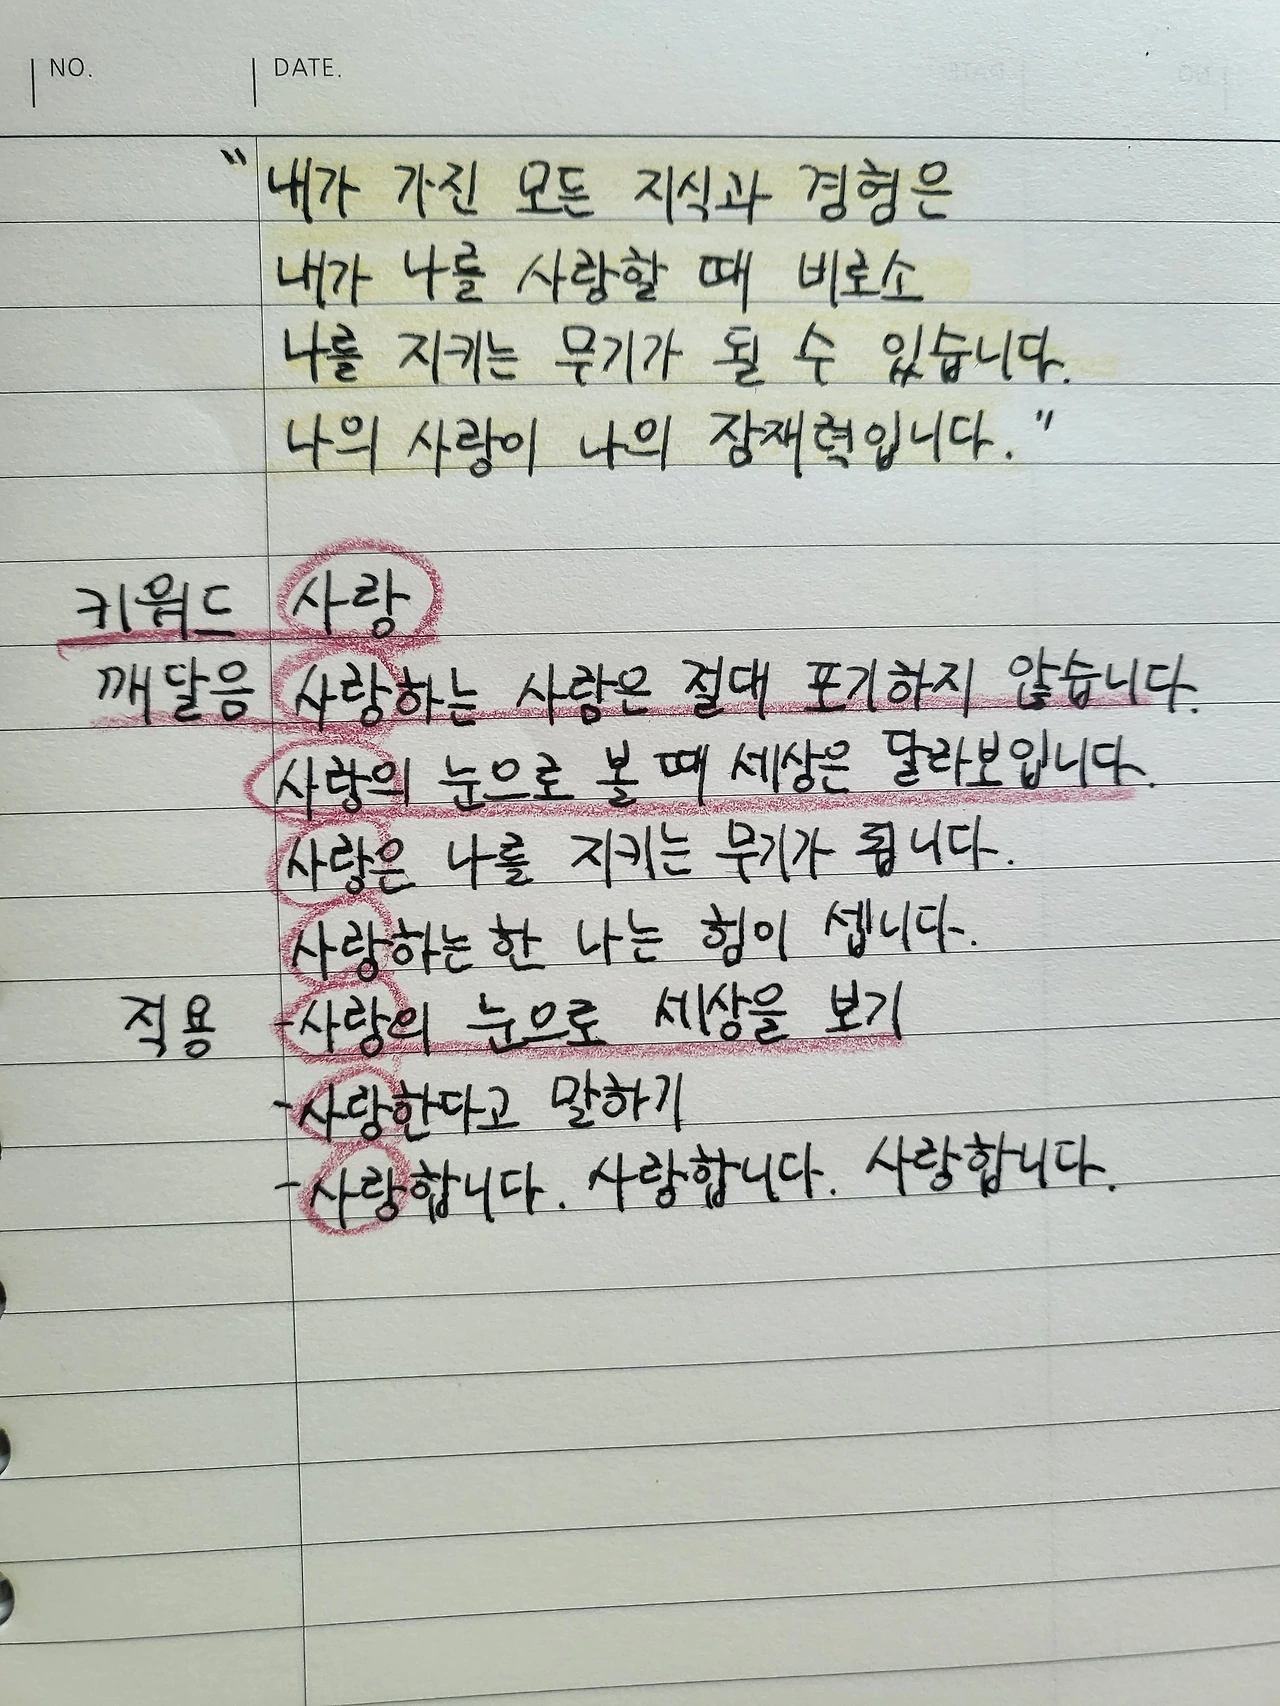 NO. DATE.
"내가 가진 모든 지식과 경험은
내가 나를 사랑할 때 비로소
나를 지키는 무기가 될 수 있습니다.
나의 사랑이 나의 잠재력입니다."
키워드 사랑
깨달음 사랑하는 사람은 절대 포기하지 않습니다.
사랑의 눈으로 볼 때 세상은 달라보입니다.
사랑은 나를 지키는 무기가 됩니다.
사랑하는 한 나는 힘이 셉니다.
적용 -사랑의 눈으로 세상을 보기
-사랑한다고 말하기
-사랑합니다. 사랑합니다. 사랑합니다.